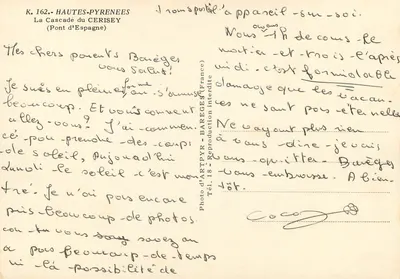 K. 162. - HAUTES-PYRENEES
La Cascade du CERISEY
(Pont d'Espagne)
Mes chers parents Barèges
vous Salue!
Je suis en pleine forme on s'amuse
beaucoup. Et vous comment
allez-vous? J'ai commen
cé pour prendre des coups
de soleil, Aujourd'hui
Lundi le soleil c'est mon
tré. Je n'ai pas encore
pris beaucoup de photos
car tu vous savez on
a pas beaucoup de temps
ni la possibilité de
Photo d'ART PYR - BAREGES (France)
Tél. 18 - Reproduction interdite
transporter l'appareil sur soi.
ayons
Nous 1h de cours le
matin et trois l'après
midi c'est formidable
dommage que les vacan
ces ne sont pas éternelles
Ne voyant plus rien
à vous dire je vais
vous quitter. Barèges
vous embrasse. A bien
tôt.
Coco